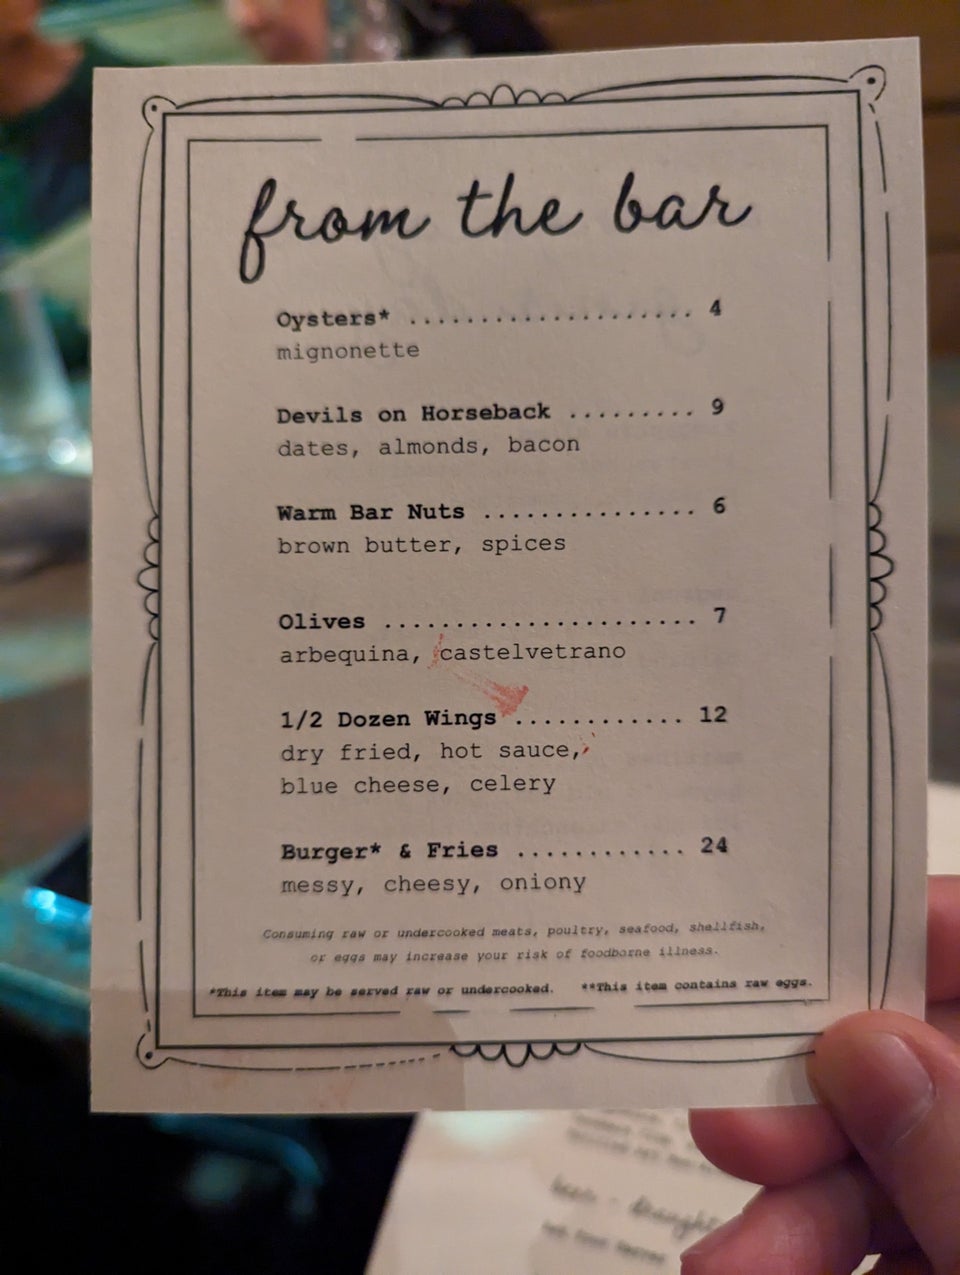 from the bar
Oysters* .................... 4
mignonette
Devils on Horseback ......... 9
dates, almonds, bacon
Warm Bar Nuts ............... 6
brown butter, spices
Olives ...................... 7
arbequina, castelvetrano
1/2 Dozen Wings ............ 12
dry fried, hot sauce,
blue cheese, celery
Burger* & Fries ............ 24
messy, cheesy, oniony
Consuming raw or undercooked meats, poultry, seafood, shellfish,
or eggs may increase your risk of foodborne illness.
*This item may be served raw or undercooked. **This item contains raw eggs.